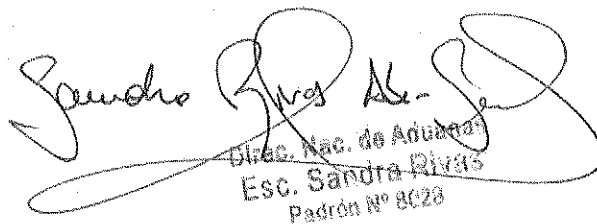 Sandra Rivas
Direc. Nac. de Aduanas
Esc. Sandra Rivas
Padrón Nº 8028